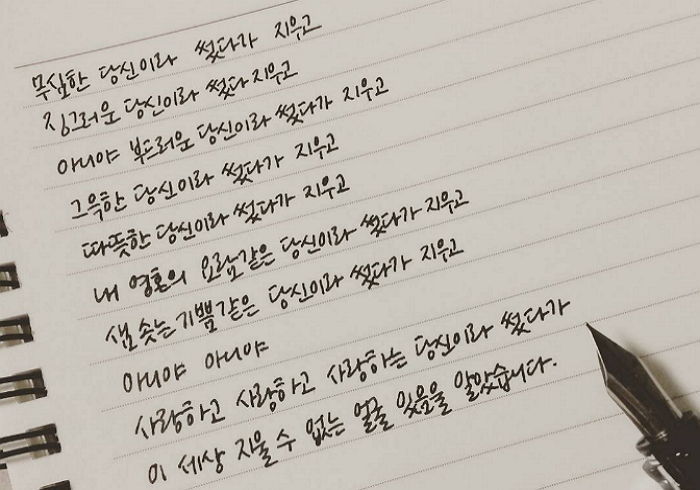 무심한 당신이라 썼다가 지우고
징그러운 당신이라 썼다 지우고
아니야 부드러운 당신이라 썼다가 지우고
그윽한 당신이라 썼다가 지우고
따뜻한 당신이라 썼다가 지우고
내 영혼의 요람같은 당신이라 썼다가 지우고
샘솟는 기쁨같은 당신이라 썼다가 지우고
아니야 아니야
사랑하고 사랑하고 사랑하는 당신이라 썼다가
이 세상 지울 수 없는 얼굴 있음을 알았습니다.